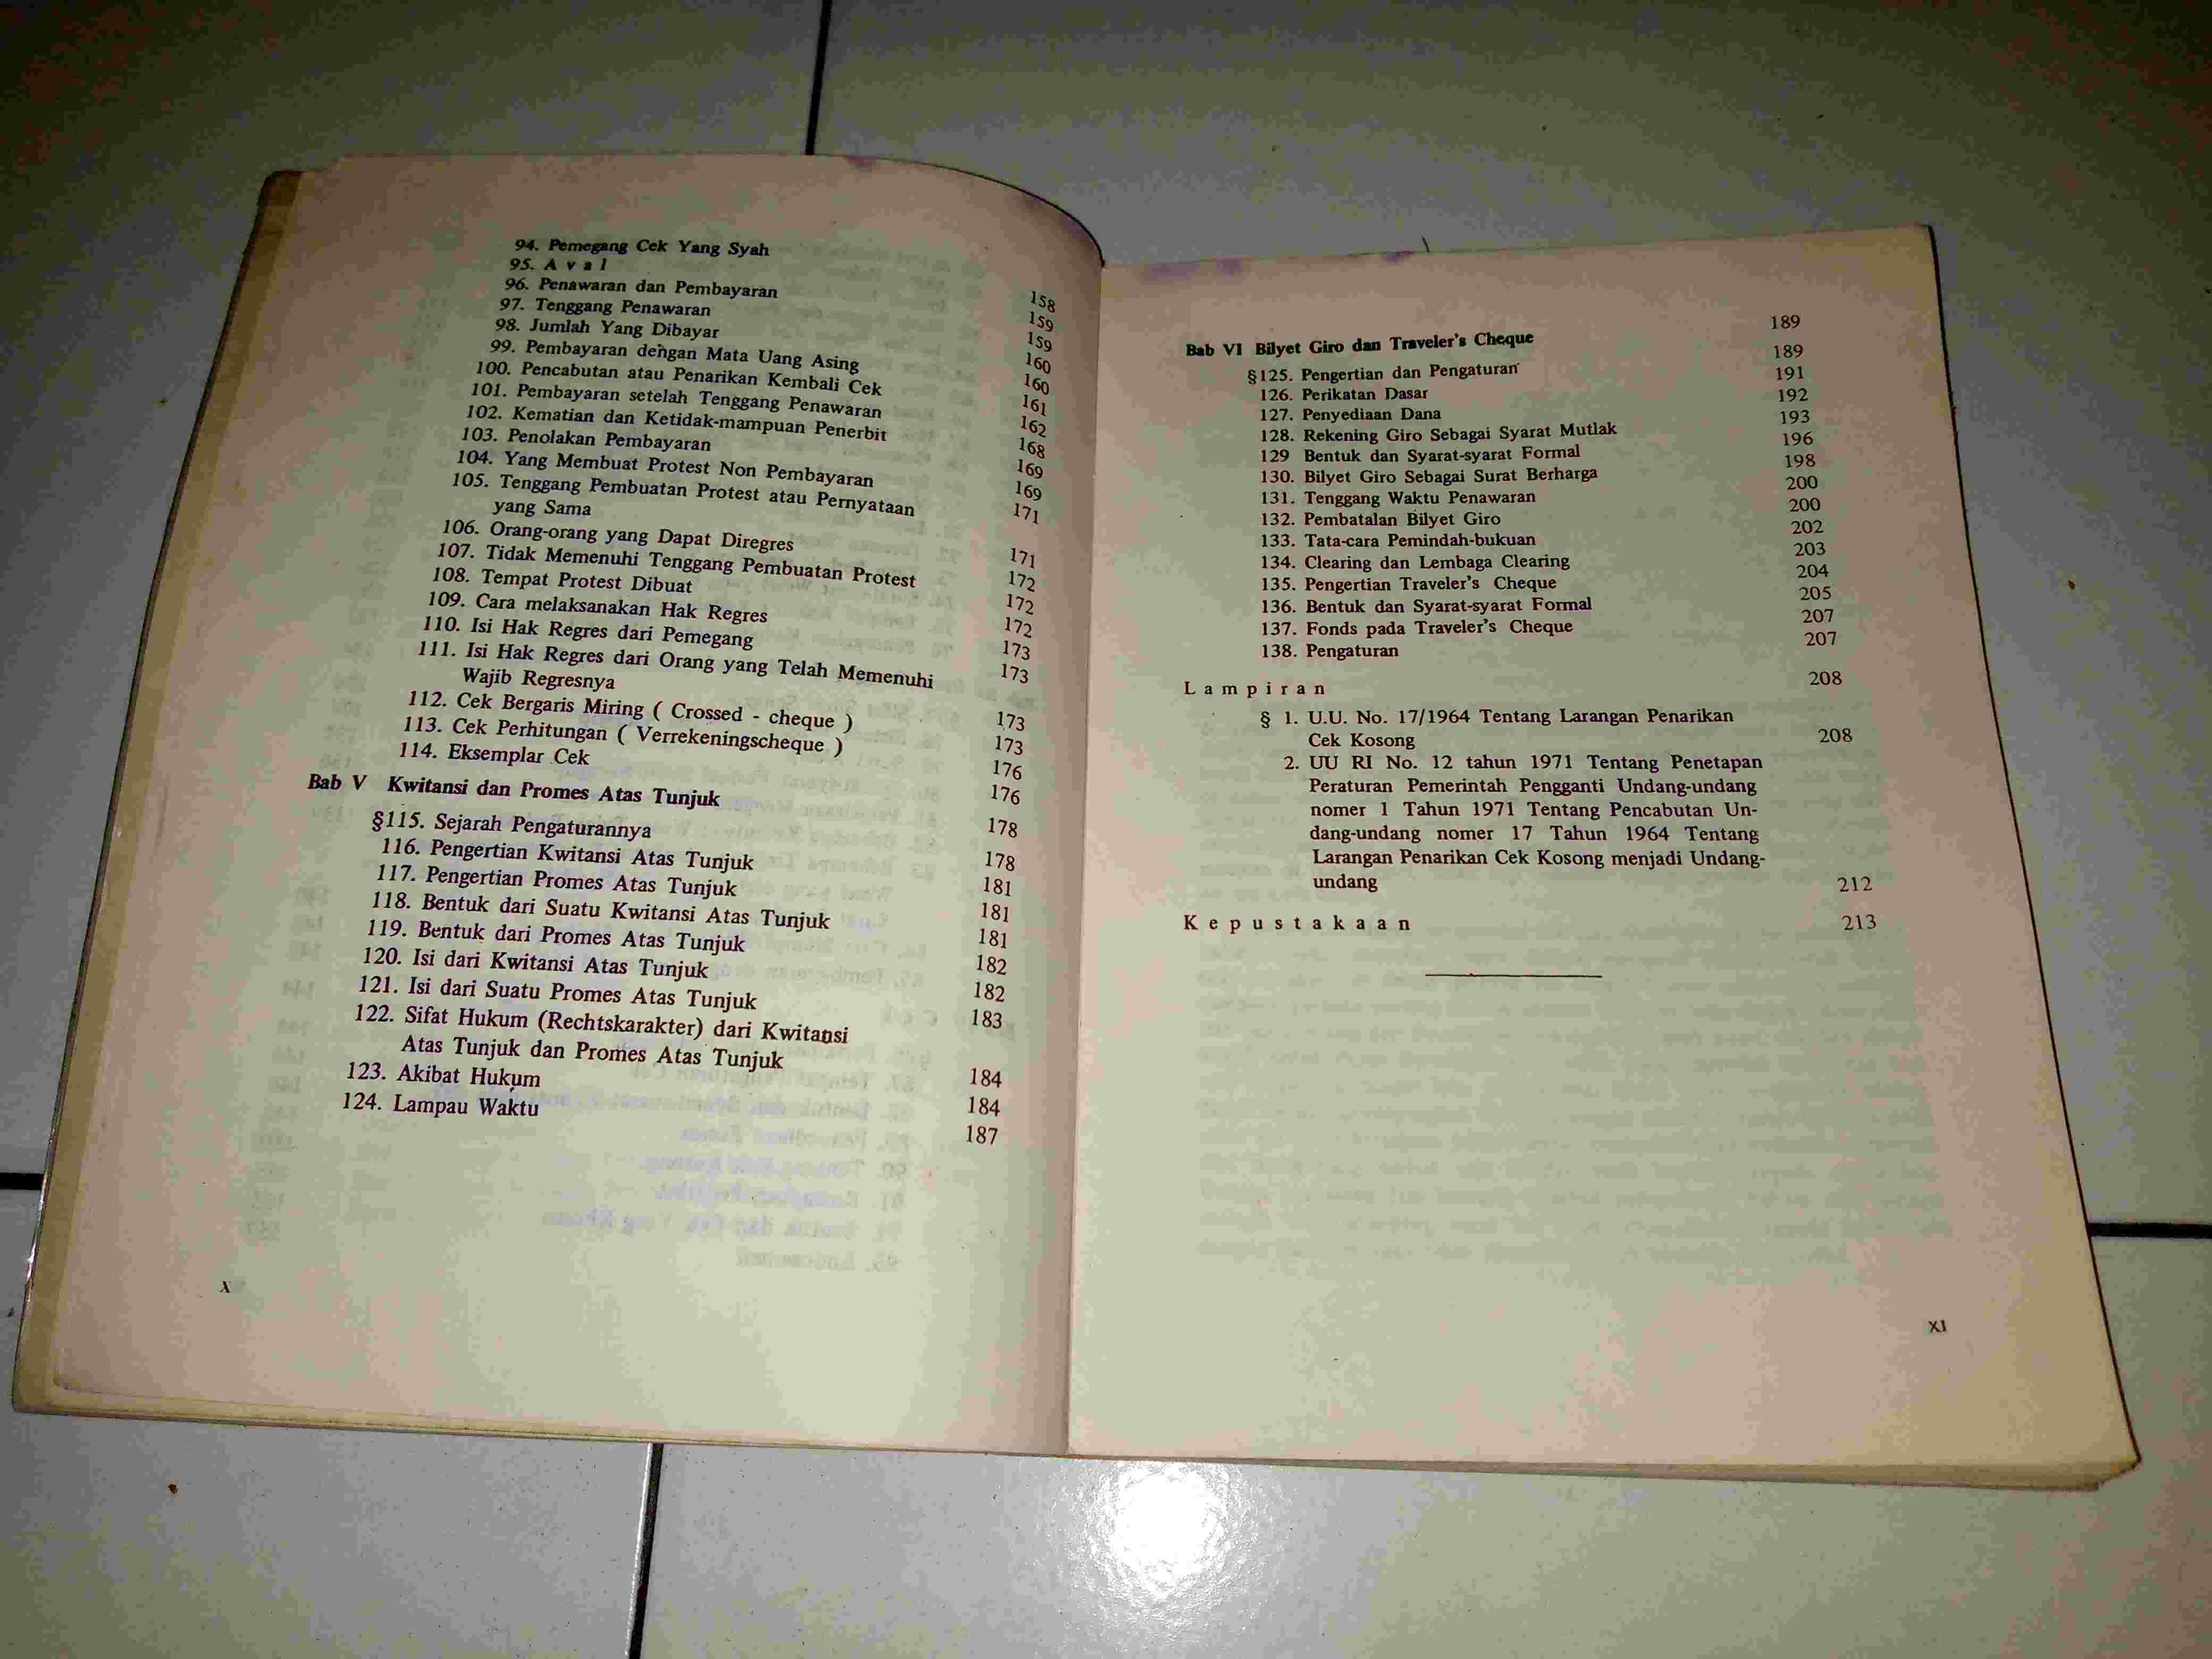 94. Pemegang Cek Yang Syah 158
95. A v a l 159
96. Penawaran dan Pembayaran 159
97. Tenggang Penawaran 160
98. Jumlah Yang Dibayar 160
99. Pembayaran dengan Mata Uang Asing 161
100. Pencabutan atau Penarikan Kembali Cek 162
101. Pembayaran setelah Tenggang Penawaran 168
102. Kematian dan Ketidak-mampuan Penerbit 169
103. Penolakan Pembayaran 169
104. Yang Membuat Protest Non Pembayaran 171
105. Tenggang Pembuatan Protest atau Pernyataan
yang Sama 171
106. Orang-orang yang Dapat Diregres 172
107. Tidak Memenuhi Tenggang Pembuatan Protest 172
108. Tempat Protest Dibuat 172
109. Cara melaksanakan Hak Regres 173
110. Isi Hak Regres dari Pemegang 173
111. Isi Hak Regres dari Orang yang Telah Memenuhi
Wajib Regresnya 173
112. Cek Bergaris Miring ( Crossed - cheque ) 173
113. Cek Perhitungan ( Verrekeningscheque ) 176
114. Eksemplar Cek 176
Bab V Kwitansi dan Promes Atas Tunjuk 178
§115. Sejarah Pengaturannya 178
116. Pengertian Kwitansi Atas Tunjuk 181
117. Pengertian Promes Atas Tunjuk 181
118. Bentuk dari Suatu Kwitansi Atas Tunjuk 181
119. Bentuk dari Promes Atas Tunjuk 182
120. Isi dari Kwitansi Atas Tunjuk 182
121. Isi dari Suatu Promes Atas Tunjuk 183
122. Sifat Hukum (Rechtskarakter) dari Kwitansi
Atas Tunjuk dan Promes Atas Tunjuk 184
123. Akibat Hukum 184
124. Lampau Waktu 187
X
Bab VI Bilyet Giro dan Traveler's Cheque 189
§125. Pengertian dan Pengaturan 189
126. Perikatan Dasar 191
127. Penyediaan Dana 192
128. Rekening Giro Sebagai Syarat Mutlak 193
129 Bentuk dan Syarat-syarat Formal 196
130. Bilyet Giro Sebagai Surat Berharga 198
131. Tenggang Waktu Penawaran 200
132. Pembatalan Bilyet Giro 200
133. Tata-cara Pemindah-bukuan 202
134. Clearing dan Lembaga Clearing 203
135. Pengertian Traveler's Cheque 204
136. Bentuk dan Syarat-syarat Formal 205
137. Fonds pada Traveler's Cheque 207
138. Pengaturan 207
L a m p i r a n 208
§ 1. U.U. No. 17/1964 Tentang Larangan Penarikan
Cek Kosong 208
2. UU RI No. 12 tahun 1971 Tentang Penetapan
Peraturan Pemerintah Pengganti Undang-undang
nomer 1 Tahun 1971 Tentang Pencabutan Un-
dang-undang nomer 17 Tahun 1964 Tentang
Larangan Penarikan Cek Kosong menjadi Undang-
undang 212
K e p u s t a k a a n 213
XI